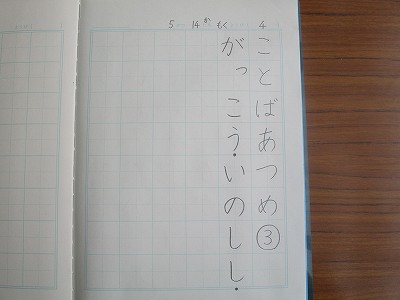 5 14 か もく 4
ことばあつめ③
がっこう・いのしし・